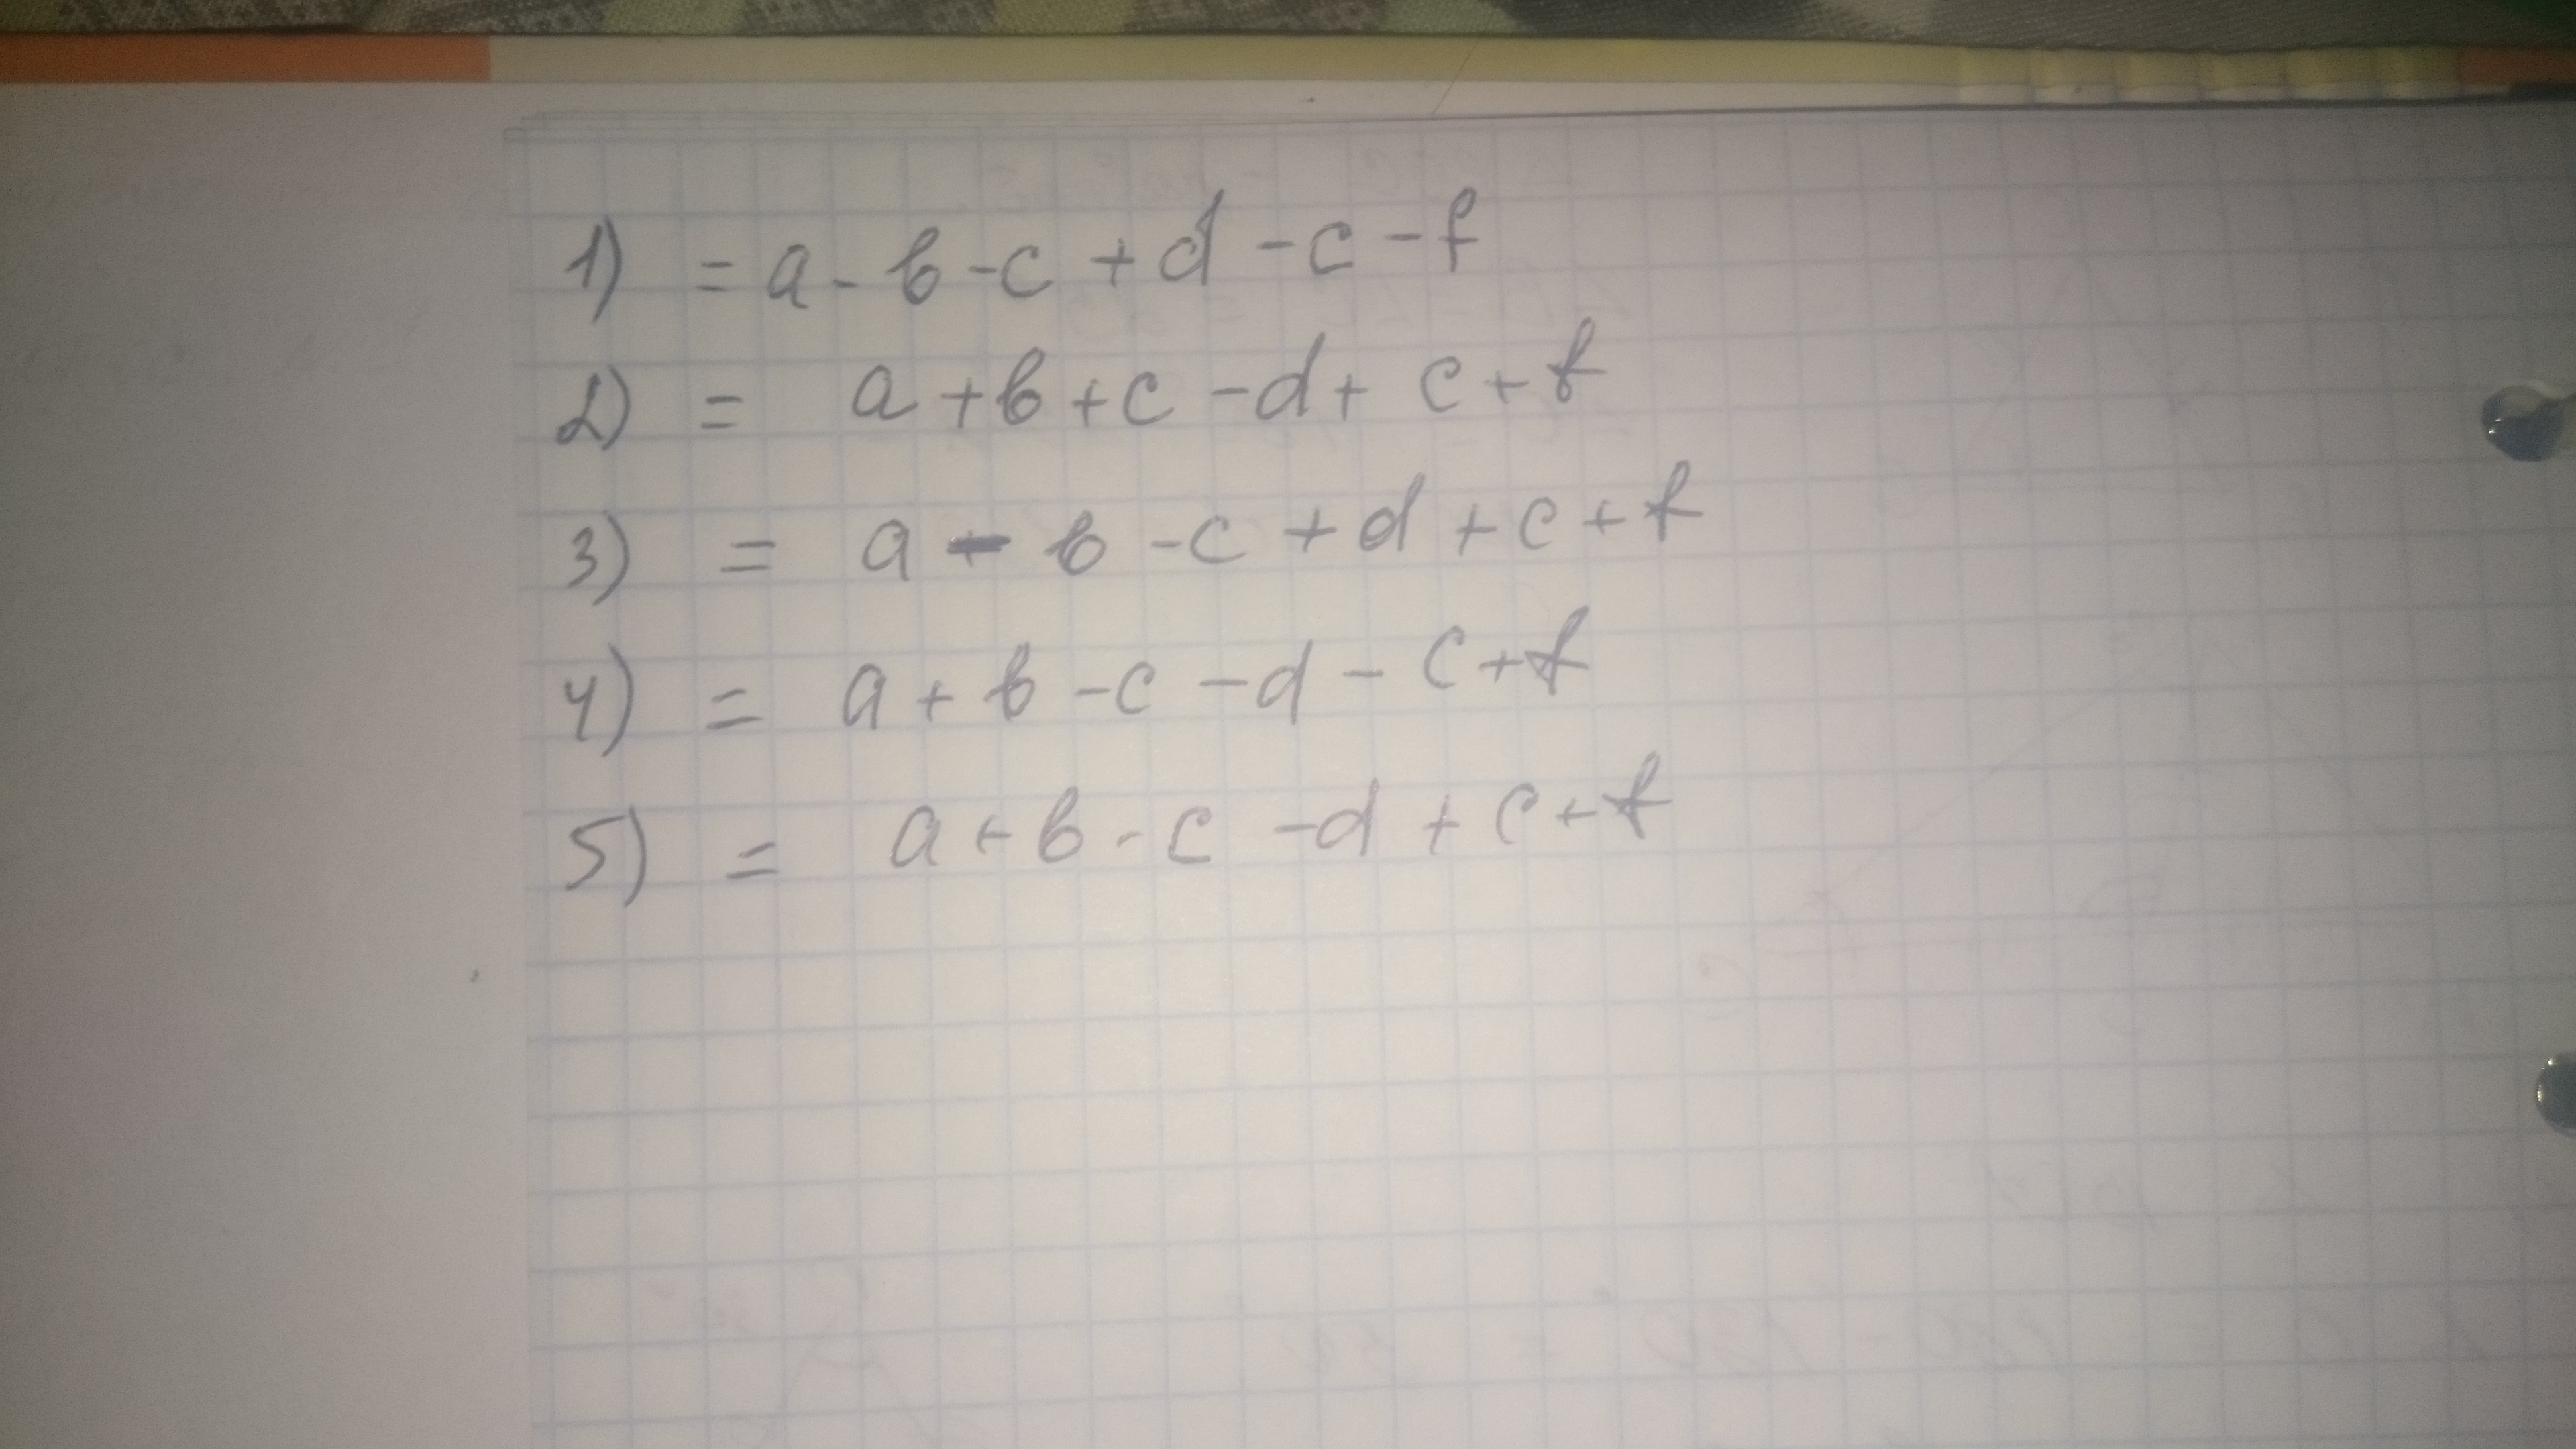 1) = a - b - c + d - c - f
2) = a + b + c - d + c + f
3) = a - b - c + d + c + f
4) = a + b - c - d - c + f
5) = a + b - c - d + c + f